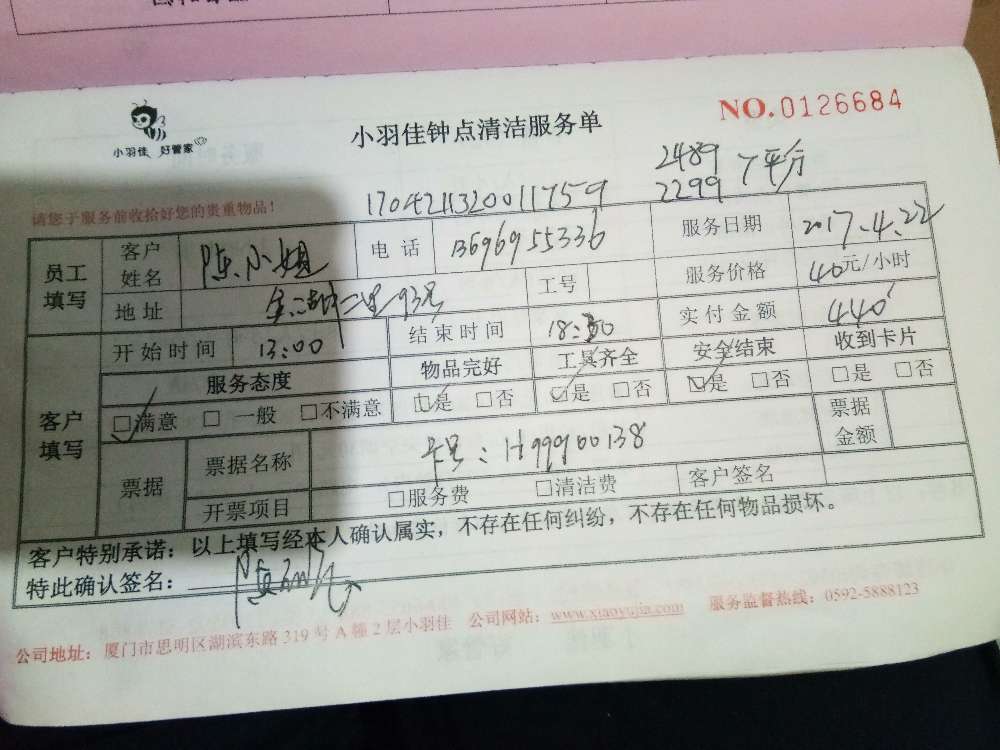 小羽佳 好管家
小羽佳钟点清洁服务单
NO.0126684
2489
2299 平分
请您于服务前收拾好您的贵重物品！
1704211320011759
员工填写 客户姓名 陈小姐 电话 13696955336 服务日期 2017.4.22
地址 93号 工号 服务价格 40元/小时
客户填写 开始时间 13:00 结束时间 18:30 实付金额 440
服务态度 物品完好 工具齐全 安全结束 收到卡片
☑满意 □一般 □不满意 ☑是 □否 ☑是 □否 ☑是 □否 □是 □否
票据 票据名称 卡号：H99900138 票据金额
开票项目 □服务费 □清洁费 客户签名
客户特别承诺：以上填写经本人确认属实，不存在任何纠纷，不存在任何物品损坏。
特此确认签名：
公司地址：厦门市思明区湖滨东路319号A幢2层小羽佳 公司网站：www.xiaoyujia.com 服务监督热线：0592-5888123